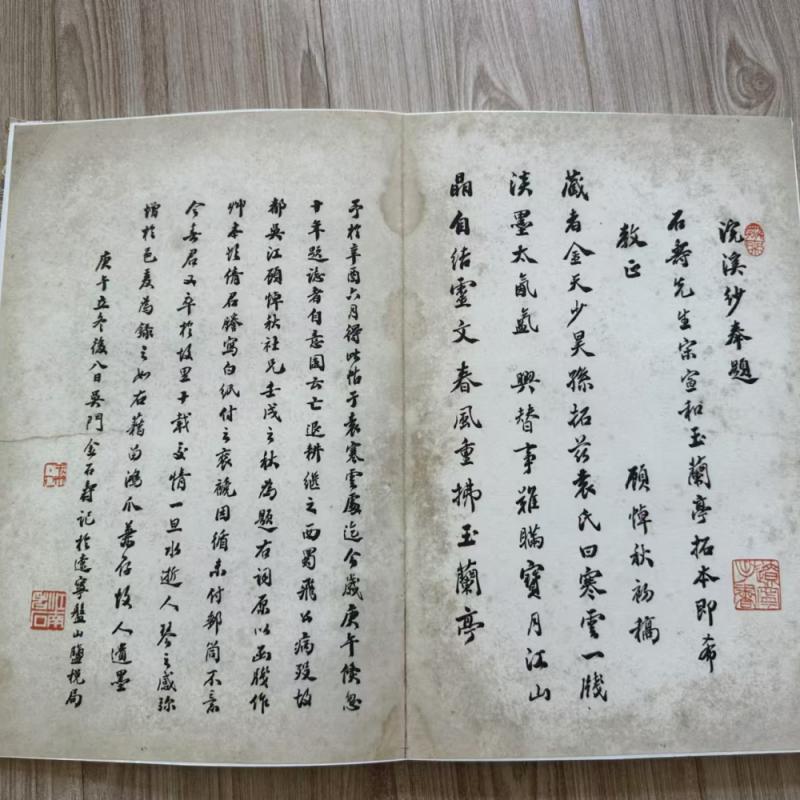 浣溪紗奉題
石壽先生宋宣和玉蘭亭拓本即希
教正
顧悼秋初稿
藏者金天少昊孫拓茲袁氏曰寒雲一牋
淡墨太氤氳 興替事難瞞寶月江山
晶自結靈文春風重拂玉蘭亭
予於辛酉六月得此帖于袁寒雲處迄今歲庚午倏忽
十年題誌者自意園云亡退耕繼之西蜀飛公病歿故
都吳江顧悼秋社兄壬戌之秋為題右詞原以函牋作
艸本後倩君謄寫白紙付之裝競因循未付郵筒不意
今春君又卒於故里十載交情一旦水逝人琴之感彌
增於邑爰為錄之如右藉留鴻爪兼存故人遺墨
庚午立冬後八日吳門金石壽記於遼寧盤山鹽稅局